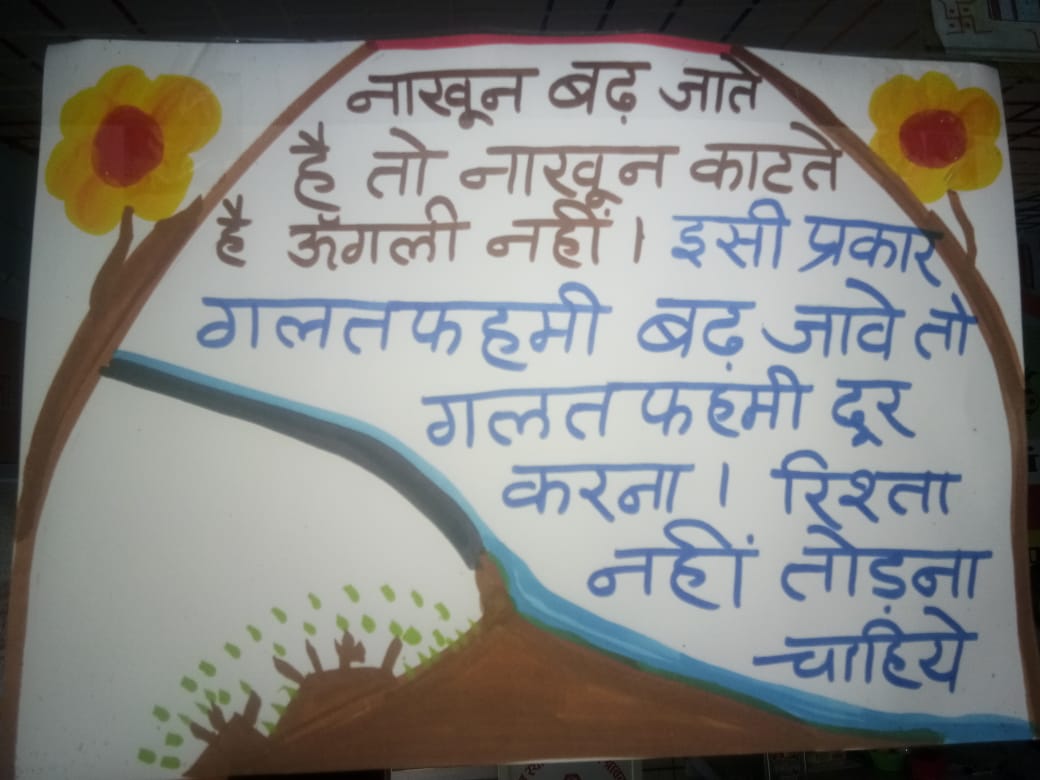 नाखून बढ़ जाते
है तो नाखून काटते
है ऊँगली नहीं। इसी प्रकार
गलतफहमी बढ़ जावे तो
गलतफहमी दूर
करना। रिश्ता
नहीं तोड़ना
चाहिये